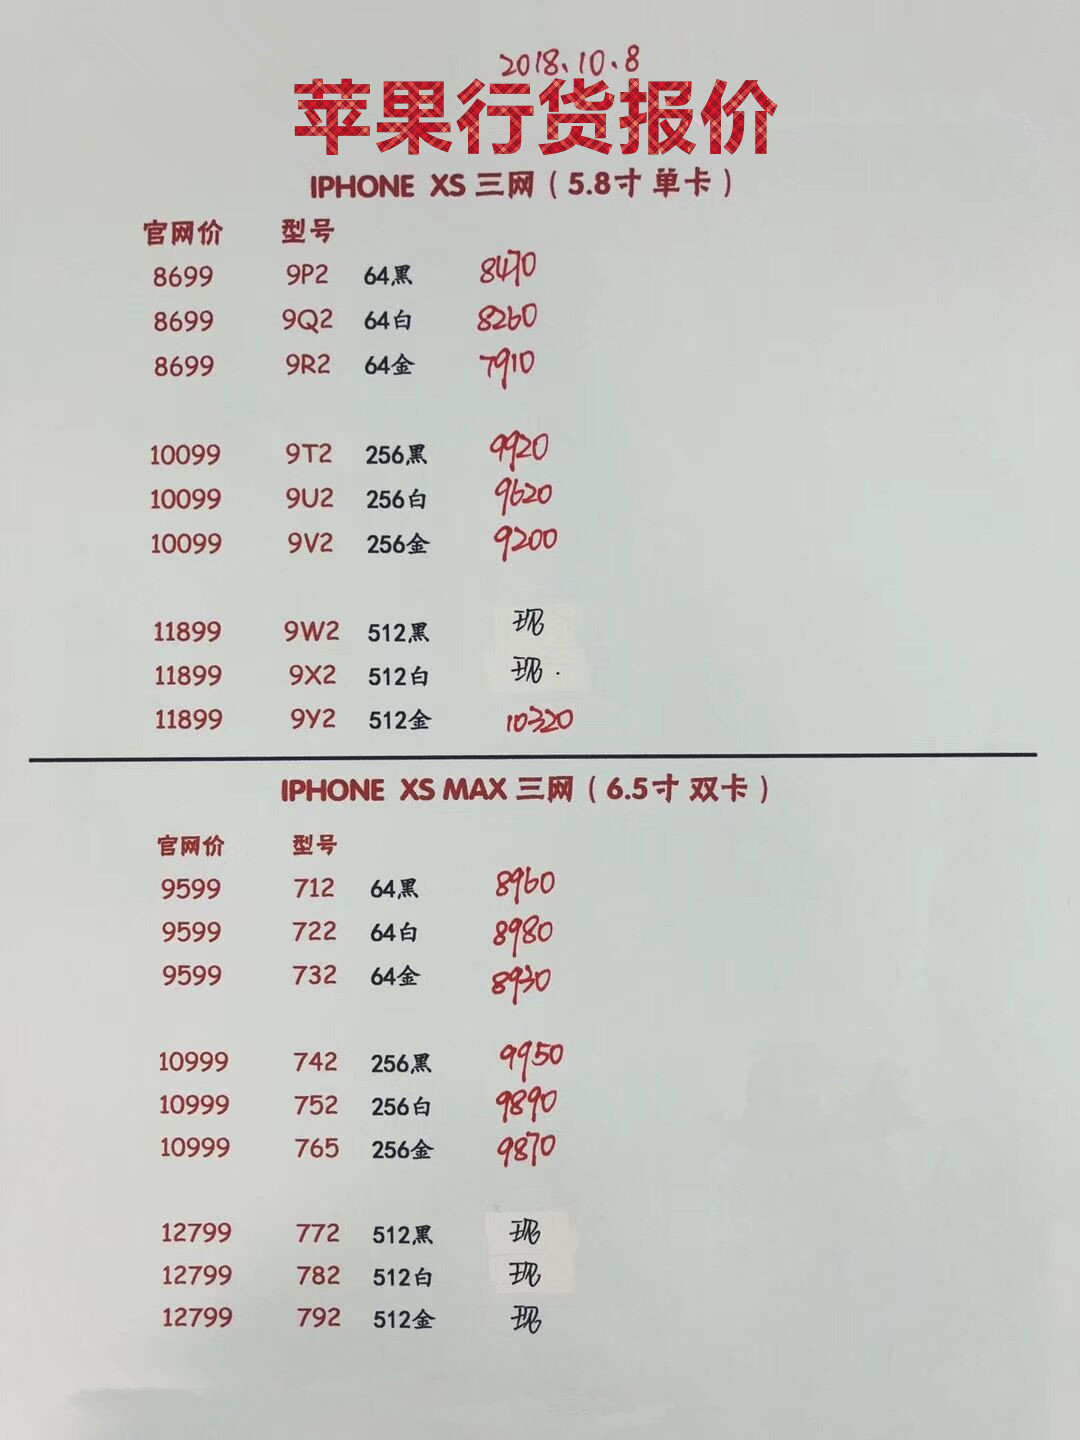 2018.10.8
苹果行货报价
IPHONE XS 三网（5.8寸 单卡）
官网价 型号
8699 9P2 64黑 8470
8699 9Q2 64白 8260
8699 9R2 64金 7910
10099 9T2 256黑 9920
10099 9U2 256白 9620
10099 9V2 256金 9200
11899 9W2 512黑 现
11899 9X2 512白 现.
11899 9Y2 512金 10320
IPHONE XS MAX 三网（6.5寸 双卡）
官网价 型号
9599 712 64黑 8960
9599 722 64白 8980
9599 732 64金 8930
10999 742 256黑 9950
10999 752 256白 9890
10999 765 256金 9870
12799 772 512黑 现
12799 782 512白 现
12799 792 512金 现